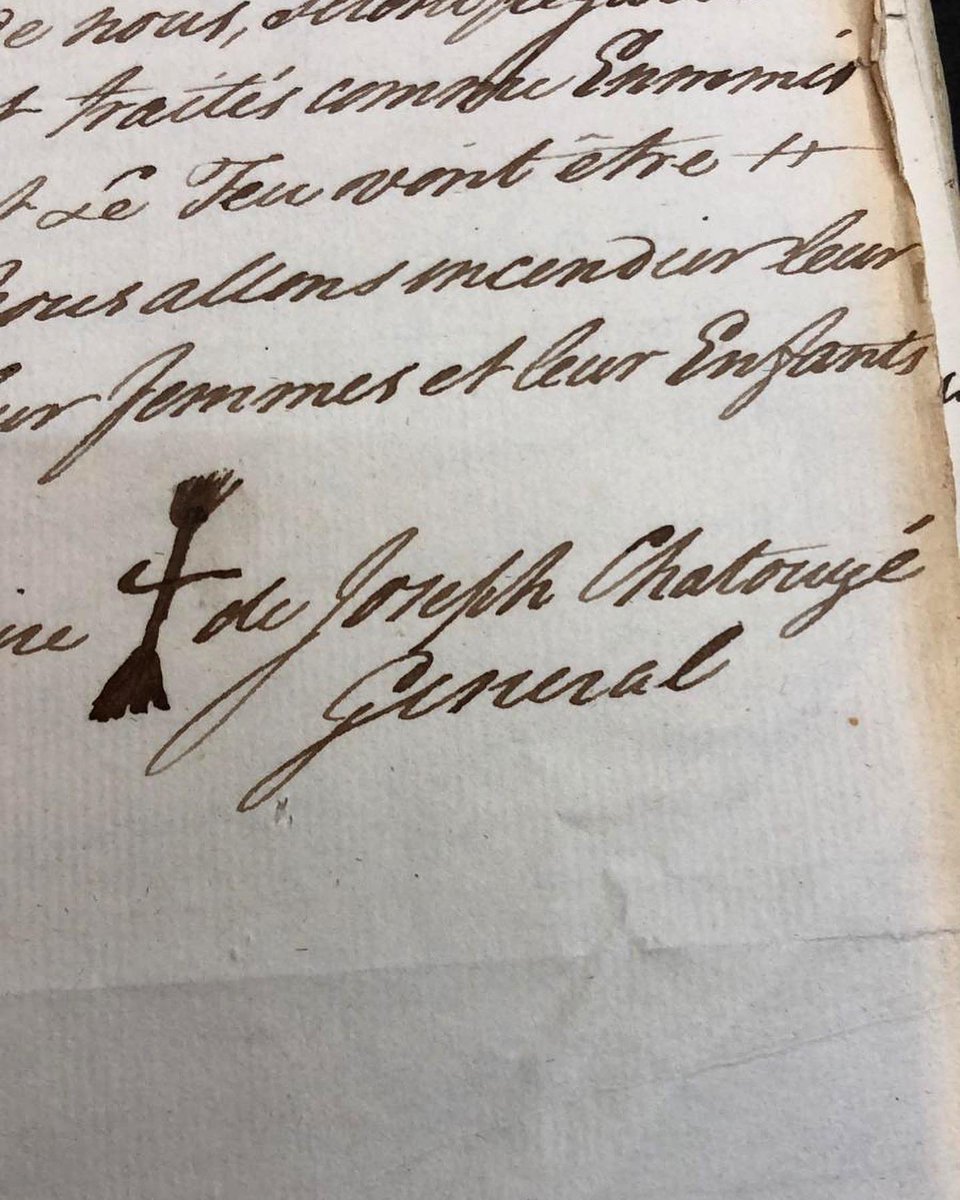 de nous, seront
traités comme Ennmis
Le Feu vont être
nous allons incendier leur
leur femmes et leur Enfants
de Joseph Chatouyé
General